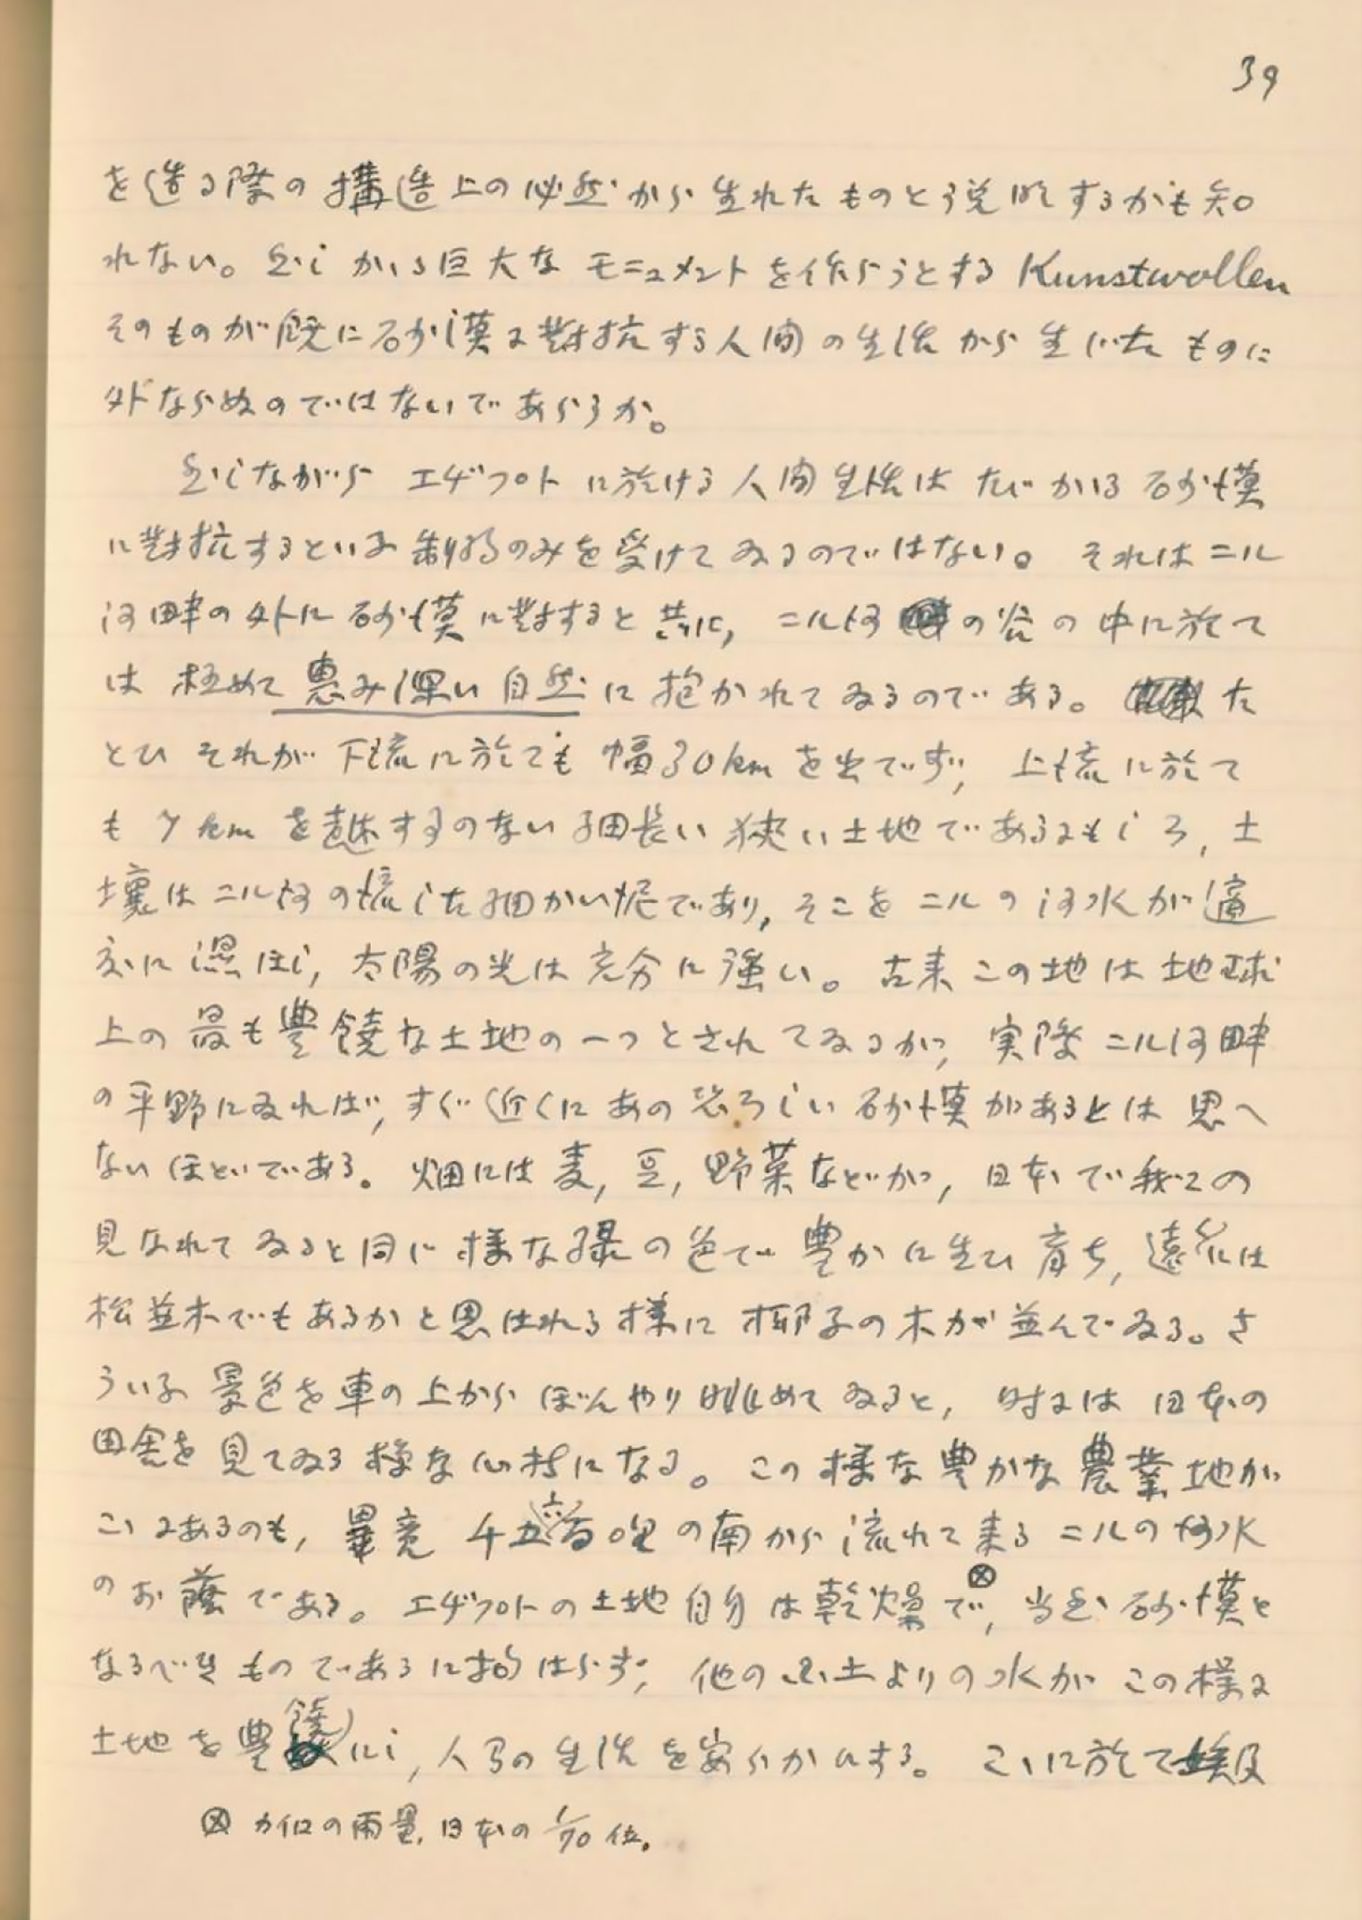 39
を造る際の構造上の必然から生れたものと説明するかも知
れない。然しかゝる巨大なモニュメントを作らうとする Kunstwollen
そのものが既に砂漠に對抗する人間の生活から生じたものに
外ならぬのではないであらうか。
然しながら エヂプトに於ける人間生活は たゞかゝる砂漠
に對抗するといふ制約のみを受けてゐるのではない。それはニル
河畔の外に砂漠に對すると共に, ニル河の谷の中に於て
は 極めて恵み深い自然に抱かれてゐるのである。た
とひ それが下流に於ても 幅30kmを出でず, 上流に於て
も 7kmを越すことのない細長い狭い土地であるにもしろ, 土
壌はニル河の流した細かい泥であり, そこをニルの河水が適
度に濕ほし, 太陽の光は充分に強い。古来この地は地球
上の最も豊饒な土地の一つとされてゐるが, 実際ニル河畔
の平野にゐれば, すぐ近くにあの恐ろしい砂漠があるとは思へ
ないほどである。畑には麦, 豆, 野菜などが, 日本で我々の
見なれてゐると同じ様な緑の色で豊かに生ひ育ち, 遠くには
松並木でもあるかと思はれる様に椰子の木が並んでゐる。さ
ういふ景色を車の上からぼんやり眺めてゐると, 時には日本の
田舎を見てゐる様な心持になる。この様な豊かな農業地が
こゝにあるのも, 畢竟 千六百哩の南から流れて来るニルの河水
のお蔭である。エヂプトの土地自身は乾燥で⊗, 当然砂漠と
なるべきものであるに拘はらず, 他の國土よりの水がこの様に
土地を豊饒にし, 人間の生活を安らかにする。こゝに於て埃及
⊗ カイロの雨量, 日本の 1/70 位。